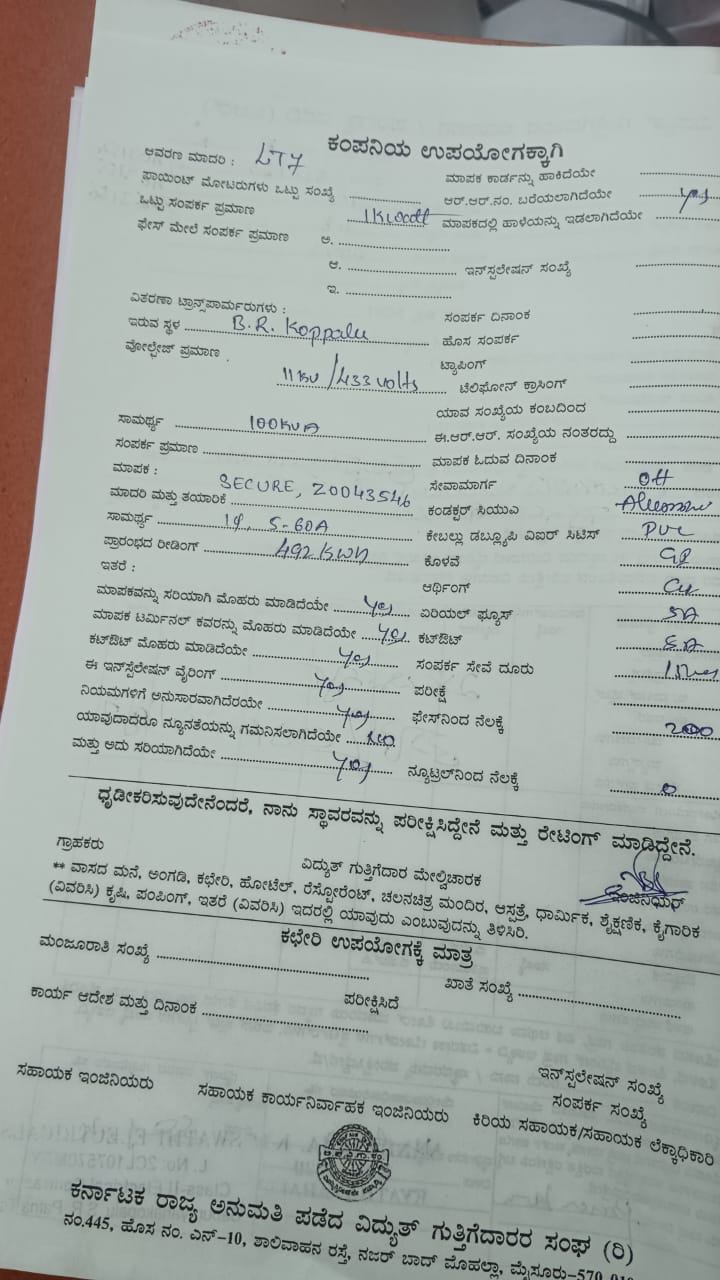 ಕಂಪನಿಯ ಉಪಯೋಗಕ್ಕಾಗಿ
ಆವರಣ ಮಾದರಿ : LT7 ಮಾಪಕ ಕಾರ್ಡನ್ನು ಹಾಕಿದೆಯೇ
ಪಾಯಿಂಟ್ ಮೋಟರುಗಳು ಒಟ್ಟು ಸಂಖ್ಯೆ ಆರ್.ಆರ್.ನಂ. ಬರೆಯಲಾಗಿದೆಯೇ yes
ಒಟ್ಟು ಸಂಪರ್ಕ ಪ್ರಮಾಣ 1Kiwatt ಮಾಪಕದಲ್ಲಿ ಹಾಳೆಯನ್ನು ಇಡಲಾಗಿದೆಯೇ
ಫೇಸ್ ಮೇಲೆ ಸಂಪರ್ಕ ಪ್ರಮಾಣ ಅ.
ಆ. ಇನ್‌ಸ್ಪಲೇಷನ್ ಸಂಖ್ಯೆ
ಇ.
ವಿತರಣಾ ಟ್ರಾನ್ಸ್‌ಪಾರ್ಮರುಗಳು : ಸಂಪರ್ಕ ದಿನಾಂಕ
ಇರುವ ಸ್ಥಳ B.R. Koppalu ಹೊಸ ಸಂಪರ್ಕ
ವೋಲ್ಟೇಜ್ ಪ್ರಮಾಣ ಟ್ಯಾಪಿಂಗ್
11KV/433 volts ಟೆಲಿಫೋನ್ ಕ್ರಾಸಿಂಗ್
ಯಾವ ಸಂಖ್ಯೆಯ ಕಂಬದಿಂದ
ಸಾಮರ್ಥ್ಯ 100KVA ಈ.ಆರ್.ಆರ್. ಸಂಖ್ಯೆಯ ನಂತರದ್ದು
ಸಂಪರ್ಕ ಪ್ರಮಾಣ ಮಾಪಕ ಓದುವ ದಿನಾಂಕ
ಮಾಪಕ : ಸೇವಾಮಾರ್ಗ OH
ಮಾದರಿ ಮತ್ತು ತಯಾರಿಕೆ SECURE, 20043546 ಕಂಡಕ್ಟರ್ ಸಿಯುಎ
ಸಾಮರ್ಥ್ಯ 1φ, 5-60A ಕೇಬಲ್ಲು ಡಬ್ಲ್ಯೂಪಿ ವಿಐರ್ ಸಿಟಿಸ್ PVC
ಪ್ರಾರಂಭದ ರೀಡಿಂಗ್ 492 KWH ಕೊಳವೆ GI
ಇತರೆ : ಆರ್ಥಿಂಗ್ Cu
ಮಾಪಕವನ್ನು ಸರಿಯಾಗಿ ಮೊಹರು ಮಾಡಿದೆಯೇ yes ಏರಿಯಲ್ ಫ್ಯೂಸ್ 5A
ಮಾಪಕ ಟರ್ಮಿನಲ್ ಕವರನ್ನು ಮೊಹರು ಮಾಡಿದೆಯೇ yes ಕಟ್‌ಔಟ್
ಕಟ್‌ಔಟ್ ಮೊಹರು ಮಾಡಿದೆಯೇ yes ಸಂಪರ್ಕ ಸೇವೆ ದೂರು
ಈ ಇನ್‌ಸ್ಪೆಲೇಷನ್ ವೈರಿಂಗ್ yes ಪರೀಕ್ಷೆ
ನಿಯಮಗಳಿಗೆ ಅನುಸಾರವಾಗಿದೆರಯೇ yes ಫೇಸ್‌ನಿಂದ ನೆಲಕ್ಕೆ 200
ಯಾವುದಾದರೂ ನ್ಯೂನತೆಯನ್ನು ಗಮನಿಸಲಾಗಿದೆಯೇ no
ಮತ್ತು ಅದು ಸರಿಯಾಗಿದೆಯೇ yes ನ್ಯೂಟ್ರಲ್‌ನಿಂದ ನೆಲಕ್ಕೆ 0
ಧೃಡೀಕರಿಸುವುದೇನೆಂದರೆ, ನಾನು ಸ್ಥಾವರವನ್ನು ಪರೀಕ್ಷಿಸಿದ್ದೇನೆ ಮತ್ತು ರೇಟಿಂಗ್ ಮಾಡಿದ್ದೇನೆ.
ಗ್ರಾಹಕರು ವಿದ್ಯುತ್ ಗುತ್ತಿಗೆದಾರ ಮೇಲ್ವಿಚಾರಕ ಇಂಜಿನಿಯರ್
** ವಾಸದ ಮನೆ, ಅಂಗಡಿ, ಕಛೇರಿ, ಹೋಟೆಲ್, ರೆಸ್ಟೋರೆಂಟ್, ಚಲನಚಿತ್ರ ಮಂದಿರ, ಆಸ್ಪತ್ರೆ, ಧಾರ್ಮಿಕ, ಶೈಕ್ಷಣಿಕ, ಕೈಗಾರಿಕ
(ವಿವರಿಸಿ) ಕೃಷಿ, ಪಂಪಿಂಗ್, ಇತರೆ (ವಿವರಿಸಿ) ಇದರಲ್ಲಿ ಯಾವುದು ಎಂಬುವುದನ್ನು ತಿಳಿಸಿರಿ.
ಕಛೇರಿ ಉಪಯೋಗಕ್ಕೆ ಮಾತ್ರ
ಮಂಜೂರಾತಿ ಸಂಖ್ಯೆ ಖಾತೆ ಸಂಖ್ಯೆ
ಕಾರ್ಯ ಆದೇಶ ಮತ್ತು ದಿನಾಂಕ ಪರೀಕ್ಷಿಸಿದೆ
ಇನ್‌ಸ್ಪಲೇಷನ್ ಸಂಖ್ಯೆ
ಸಂಪರ್ಕ ಸಂಖ್ಯೆ
ಸಹಾಯಕ ಇಂಜಿನಿಯರು ಸಹಾಯಕ ಕಾರ್ಯನಿರ್ವಾಹಕ ಇಂಜಿನಿಯರು ಕಿರಿಯ ಸಹಾಯಕ/ಸಹಾಯಕ ಲೆಕ್ಕಾಧಿಕಾರಿ
ಕರ್ನಾಟಕ ರಾಜ್ಯ ಅನುಮತಿ ಪಡೆದ ವಿದ್ಯುತ್ ಗುತ್ತಿಗೆದಾರರ ಸಂಘ (ರಿ)
ನಂ.445, ಹೊಸ ನಂ. ಎನ್-10, ಶಾಲಿವಾಹನ ರಸ್ತೆ, ನಜರ್ ಬಾದ್ ಮೊಹಲ್ಲಾ, ಮೈಸೂರು-570